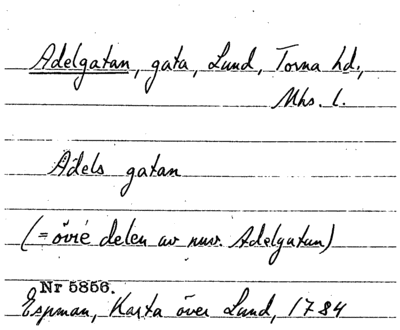 Adelgatan, gata, Lund, Torna hd.,
Mhs. l.
Adels gatan
(= övre delen av nuv. Adelgatan)
Nr 5856.
Espman, Karta över Lund, 1784